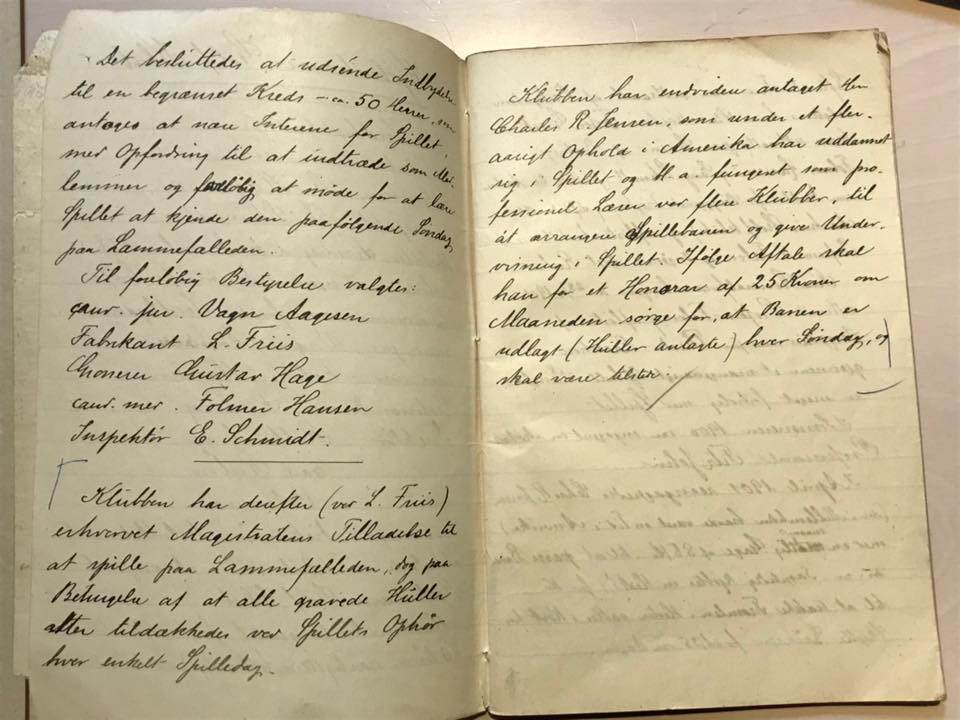 Det besluttedes at udsende Indbydelse
til en begrænset Kreds – ca. 50 Herrer, som
antoges at nære Interesse for Spillet
med Opfordring til at indtræde som Med-
lemmer og foreløbig at møde for at lære
Spillet at kjende den paafølgende Søndag
paa Lammefælleden.
Til foreløbig Bestyrelse valgtes:
cand. jur. Vagn Aagesen
Fabrikant L. Friis
Grosserer Gustav Hage
cand. med. Folmer Hansen
Inspektör E. Schmidt.
Klubben har derefter (ved L. Friis)
erhvervet Magistratens Tilladelse til
at spille paa Lammefælleden, dog paa
Betingelse af at alle gravede Huller
atter tildækkedes ved Spillets Ophør
hver enkelt Spilledag.
Klubben har endvidere antaget Herr
Charles R. Jensen, som under et fler-
aarigt Ophold i Amerika har uddannet
sig i Spillet og bl. a. fungeret som pro-
fessionel Lærer ved flere Klubber, til
at arrangere Spillebanen og give Under-
visning i Spillet. Ifølge Aftale skal
han for et Honorar af 25 Kroner om
Maaneden sørge for, at Banen er
udlagt (Huller anlagte) hver Søndag, og
skal være tilstede.